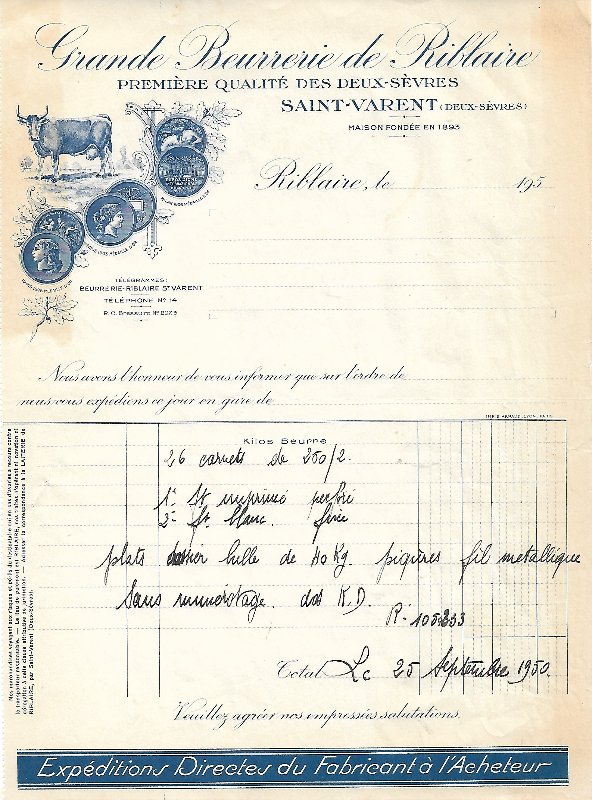 Grande Beurrerie de Riblaire
PREMIÈRE QUALITÉ DES DEUX-SÈVRES
SAINT-VARENT (DEUX-SÈVRES)
MAISON FONDÉE EN 1893
Riblaire, le 195
TÉLÉGRAMMES:
BEURRERIE-RIBLAIRE ST VARENT
TÉLÉPHONE No 14
R.C. Bressuire No
Nous avons l'honneur de vous informer que sur l'ordre de
nous vous expédions ce jour en gare de
Kilos Beurre
26 carnets de 250/2.
1° St imprimé perforé
2° St blanc. fixe
plats bulle de 40 Kg. piqûres fil métallique
Sans numérotage. dos K.D.
R. 105.233
Total Le 25 Septembre 1950.
Nos marchandises voyagent aux risques et périls du destinataire
RIBLAIRE, par Saint-Varent (Deux-Sèvres).
Veuillez agréer nos empressées salutations.
Expéditions Directes du Fabricant à l'Acheteur